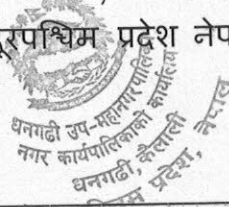 दूरपश्चिम प्रदेश नेप
धनगढी उप-महानगरपालिका
नगर कार्यपालिकाको कार्यालय
धनगढी, कैलाली
प्रदेश, नेपाल